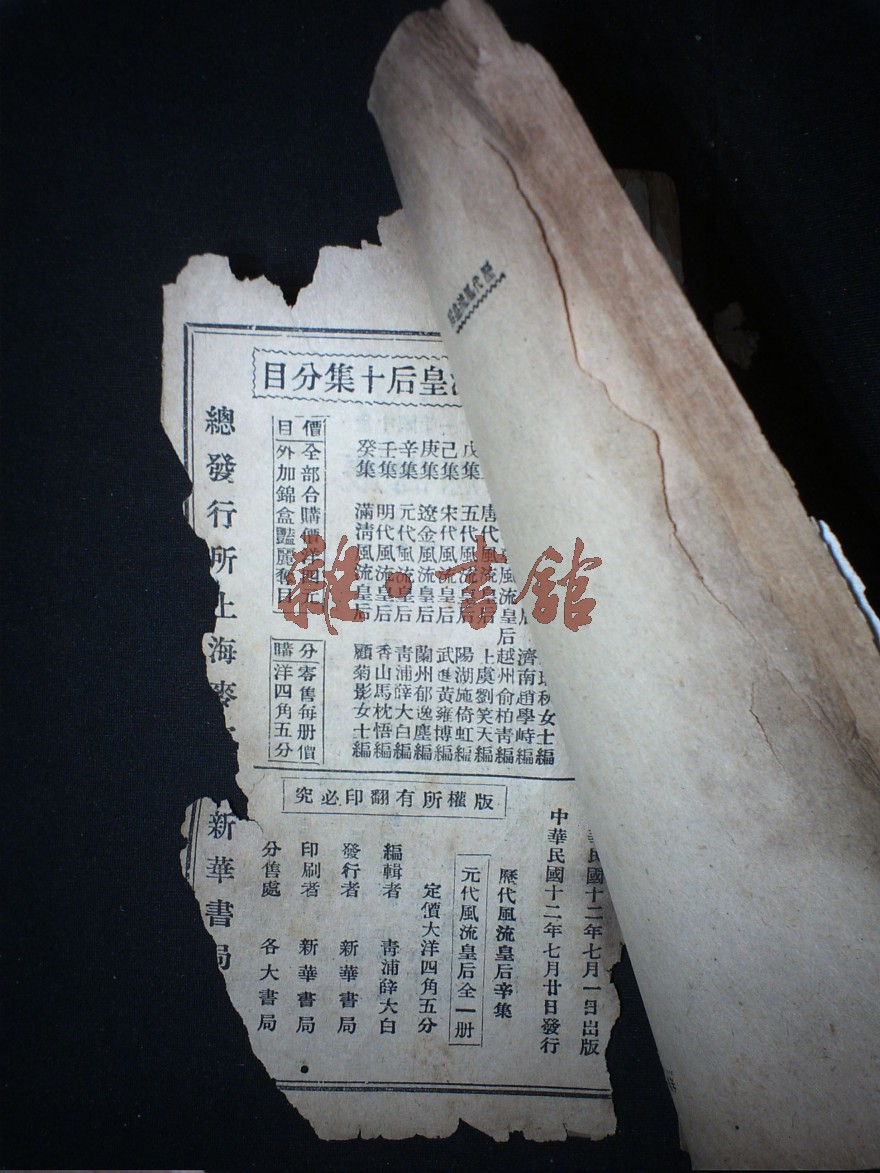 歷代風流皇后
皇后十集分目
唐代風流皇后 上虞劉笑天編
五代風流皇后 陽湖施倚虹編
己集 宋代風流皇后 武進黃雍博編
庚集 遼金風流皇后 蘭州郁逸塵編
辛集 元代風流皇后 靑浦薛大白編
壬集 明代風流皇后 香山馬枕悟編
癸集 滿淸風流皇后 顧菊影女士編
風流皇后 越州俞柏靑編
濟南趙學時編
女士編
價目
全部合購價洋四元
外加錦盒豔麗奪目
分購
零售每册價
洋四角五分
版權所有翻印必究
華民國十二年七月一日出版
中華民國十二年七月廿日發行
歷代風流皇后辛集
元代風流皇后全一册
定價大洋四角五分
編輯者 靑浦薛大白
發行者 新華書局
印刷者 新華書局
分售處 各大書局
總發行所上海麥
新華書局
雜·書館